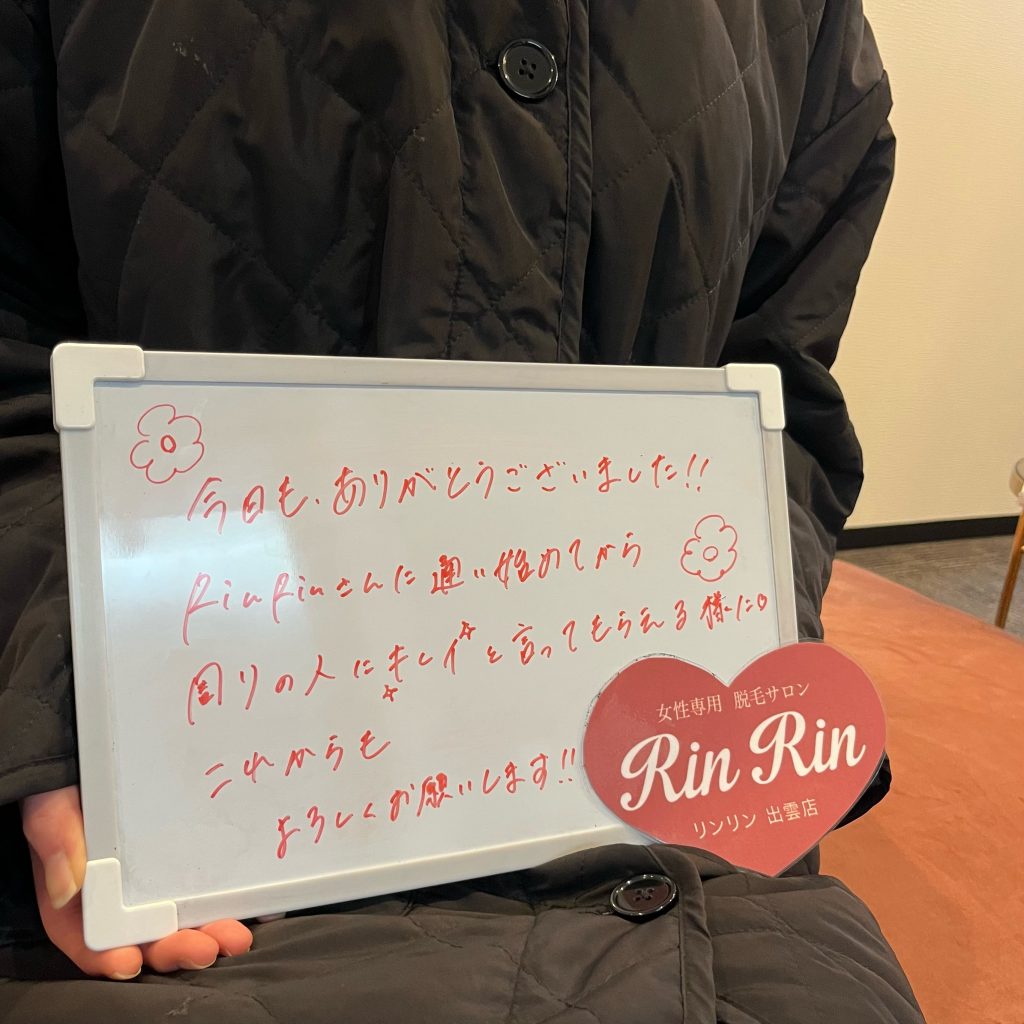 今日も、ありがとうございました!!
RinRinさんに通い始めてから
周りの人にキレイと言ってもらえる様に♡
これからも
よろしくお願いします!!
女性専用 脱毛サロン
Rin Rin
リンリン 出雲店